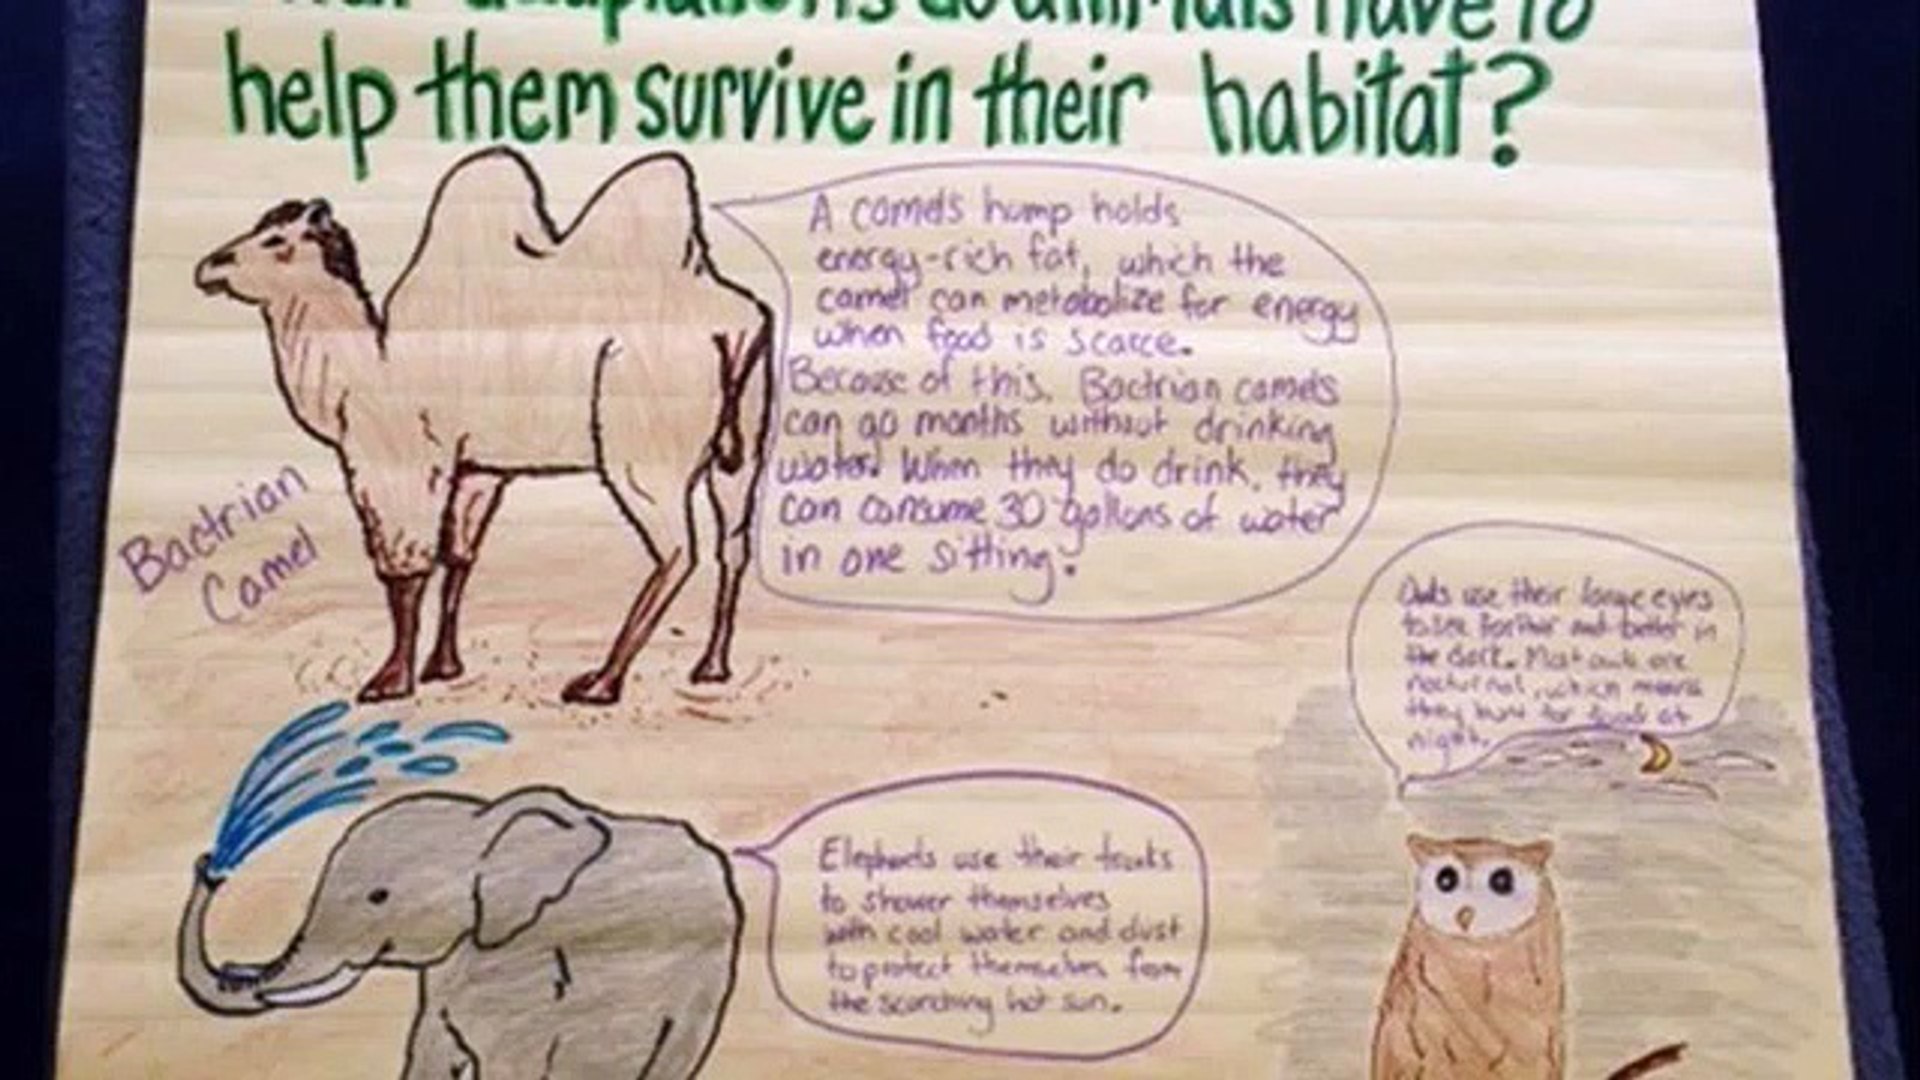 adaptations do animals have to
help them survive in their habitat?
A camel's hump holds
energy-rich fat, which the
camel can metabolize for energy
when food is scarce.
Because of this, Bactrian camels
can go months without drinking
water! When they do drink, they
can consume 30 gallons of water
in one sitting!
Bactrian
Camel
Owls use their large eyes
to see farther and better in
the dark. Most owls are
nocturnal, which means
they hunt for food at
night.
Elephants use their trunks
to shower themselves
with cool water and dust
to protect themselves from
the scorching hot sun.